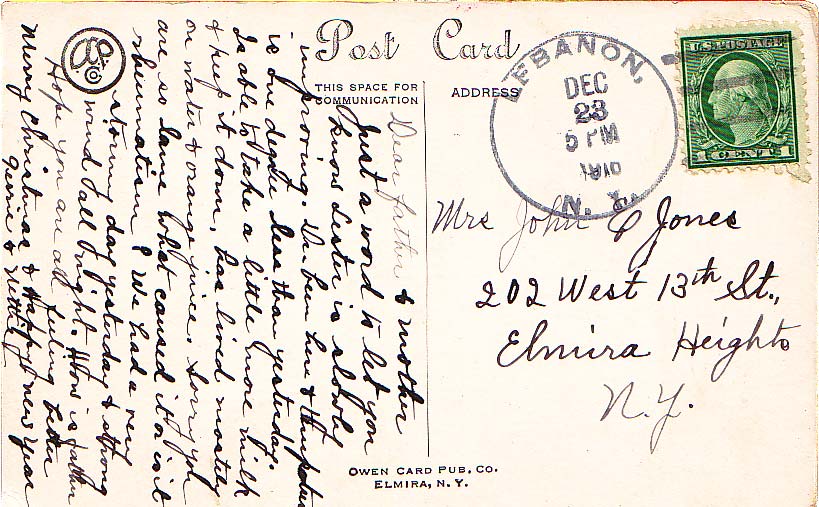 Post Card
THIS SPACE FOR
COMMUNICATION
ADDRESS
LEBANON,
DEC
23
5 PM
N. Y.
U.S. POSTAGE
1 CENT 1
Dear father & mother
Just a word to let you
know Lester is slowly
improving. Dr. been here &
is one degree less than yesterday.
Is able to take a little more milk
& keep it down, has lived mostly
on water & orange juice. Sorry you
are so lame what caused it or is it
rheumatism? We had a very
stormy day yesterday & strong
wind all night. How is father
Hope you are all feeling better
Merry Christmas & Happy new year
Mrs John C Jones
202 West 13th St.,
Elmira Heights
N.Y.
OWEN CARD PUB. CO.
ELMIRA, N. Y.